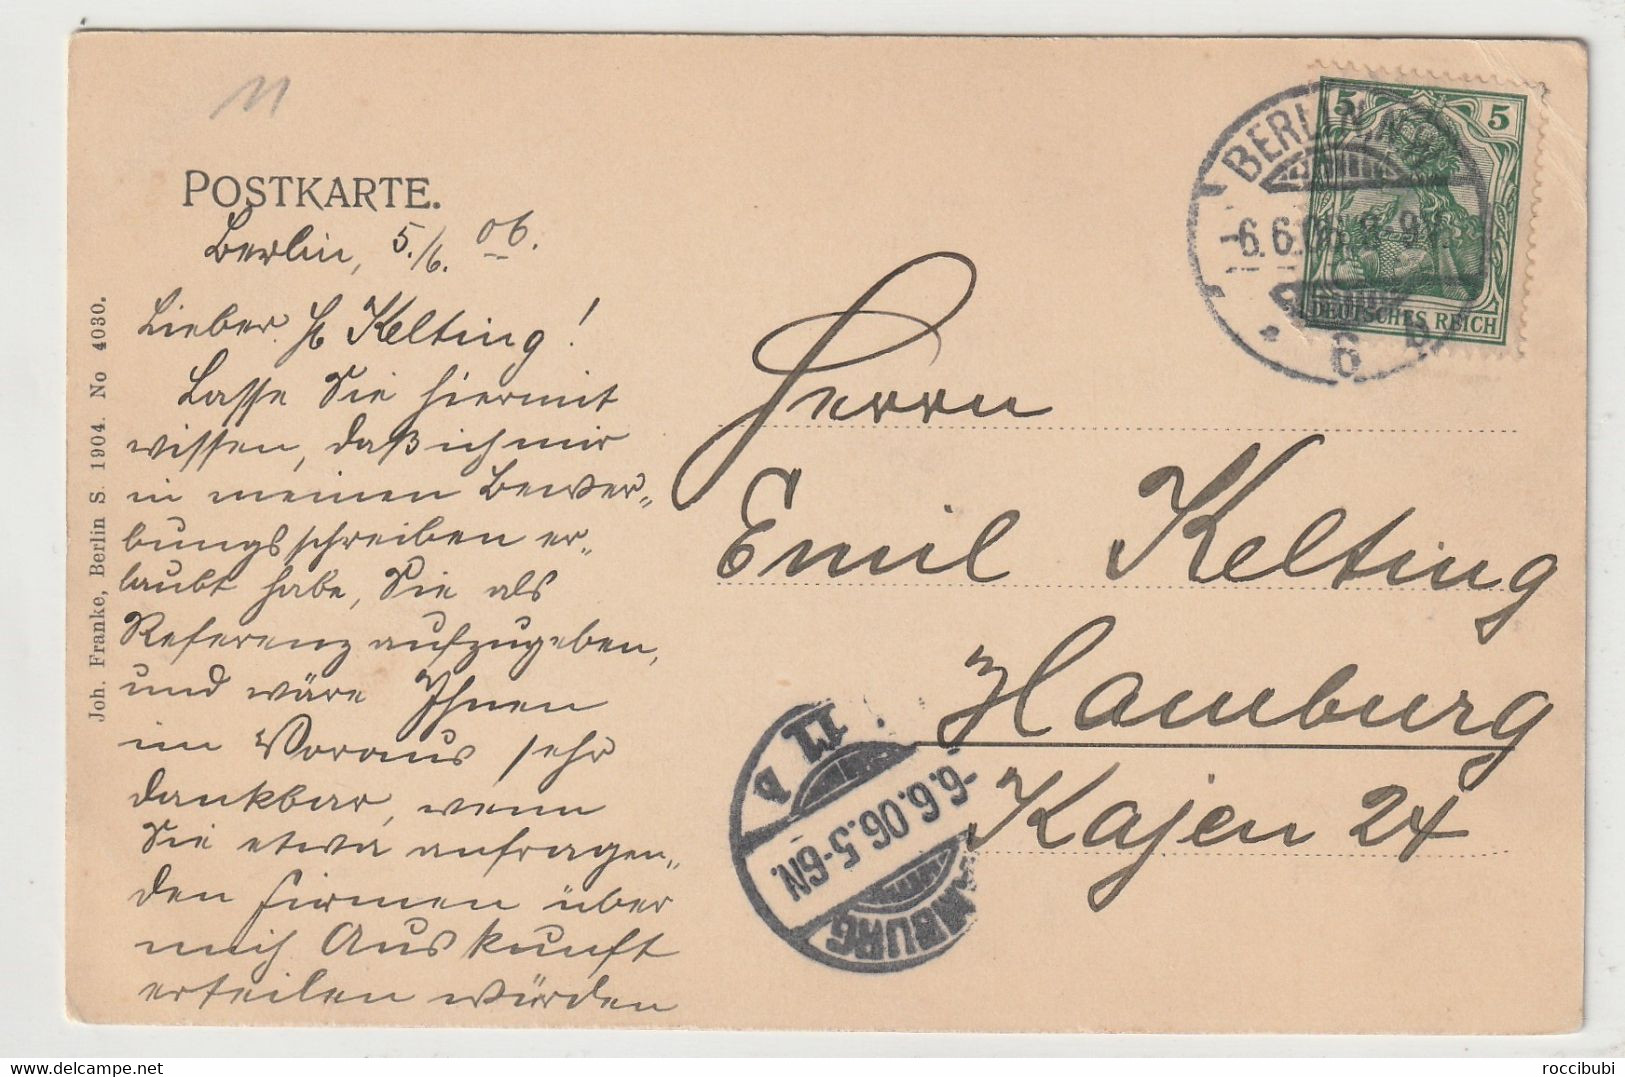 11
POSTKARTE.
Berlin, 5./6. 06.
Lieber H Kelting!
Lasse Sie hiermit
wissen, daß ich mir
in meinen Bewer-
bungsschreiben er-
laubt habe, Sie als
Referenz aufzugeben,
und wäre Ihnen
im Voraus sehr
dankbar, wenn
Sie etwa anfragen-
den Firmen über
mich Auskunft
erteilen würden
Joh. Franke, Berlin S. 1904. No 4030.
5 5
DEUTSCHES REICH
BERLIN, N.
-6.6.06. 8-9V.
* 6 b
Herrn
Emil Kelting
Hamburg
Kajen 24
HAMBURG
-6.6.06.5-6N.
11
delcampe.net
roccibubi